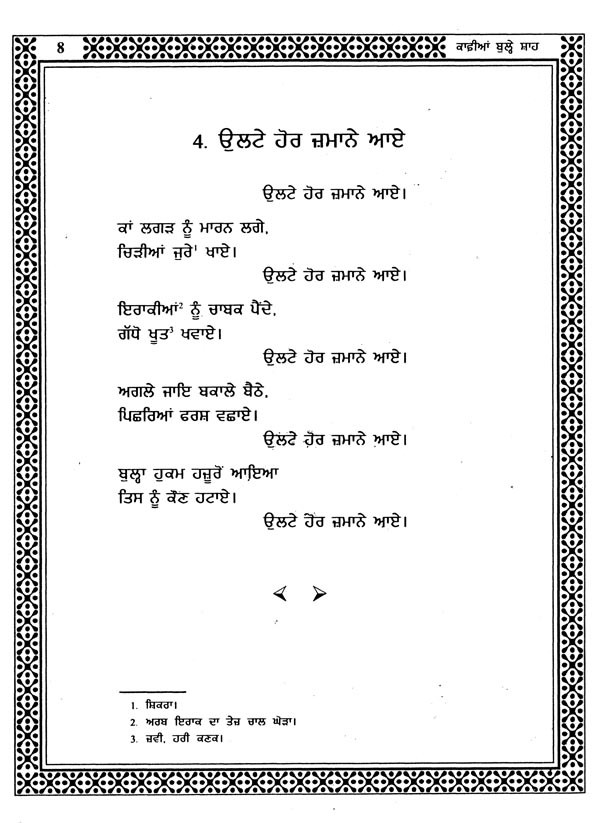 8
ਕਾਫ਼ੀਆਂ ਬੁਲ੍ਹੇ ਸ਼ਾਹ
4. ਉਲਟੇ ਹੋਰ ਜ਼ਮਾਨੇ ਆਏ
ਉਲਟੇ ਹੋਰ ਜ਼ਮਾਨੇ ਆਏ।
ਕਾਂ ਲਗੜ ਨੂੰ ਮਾਰਨ ਲਗੇ,
ਚਿੜੀਆਂ ਜੁਰੇ¹ ਖਾਏ।
ਉਲਟੇ ਹੋਰ ਜ਼ਮਾਨੇ ਆਏ।
ਇਰਾਕੀਆਂ² ਨੂੰ ਚਾਬਕ ਪੈਂਦੇ,
ਗੱਧੋ ਖੂਤ³ ਖਵਾਏ।
ਉਲਟੇ ਹੋਰ ਜ਼ਮਾਨੇ ਆਏ।
ਅਗਲੇ ਜਾਇ ਬਕਾਲੇ ਬੈਠੇ,
ਪਿਛਰਿਆਂ ਫਰਸ਼ ਵਛਾਏ।
ਉਲਟੇ ਹੋਰ ਜ਼ਮਾਨੇ ਆਏ।
ਬੁਲ੍ਹਾ ਹੁਕਮ ਹਜ਼ੂਰੋਂ ਆਇਆ
ਤਿਸ ਨੂੰ ਕੌਣ ਹਟਾਏ।
ਉਲਟੇ ਹੋਰ ਜ਼ਮਾਨੇ ਆਏ।
1. ਸ਼ਿਕਰਾ।
2. ਅਰਬ ਇਰਾਕ ਦਾ ਤੇਜ਼ ਚਾਲ ਘੋੜਾ।
3. ਜ਼ਵੀ, ਹਰੀ ਕਣਕ।